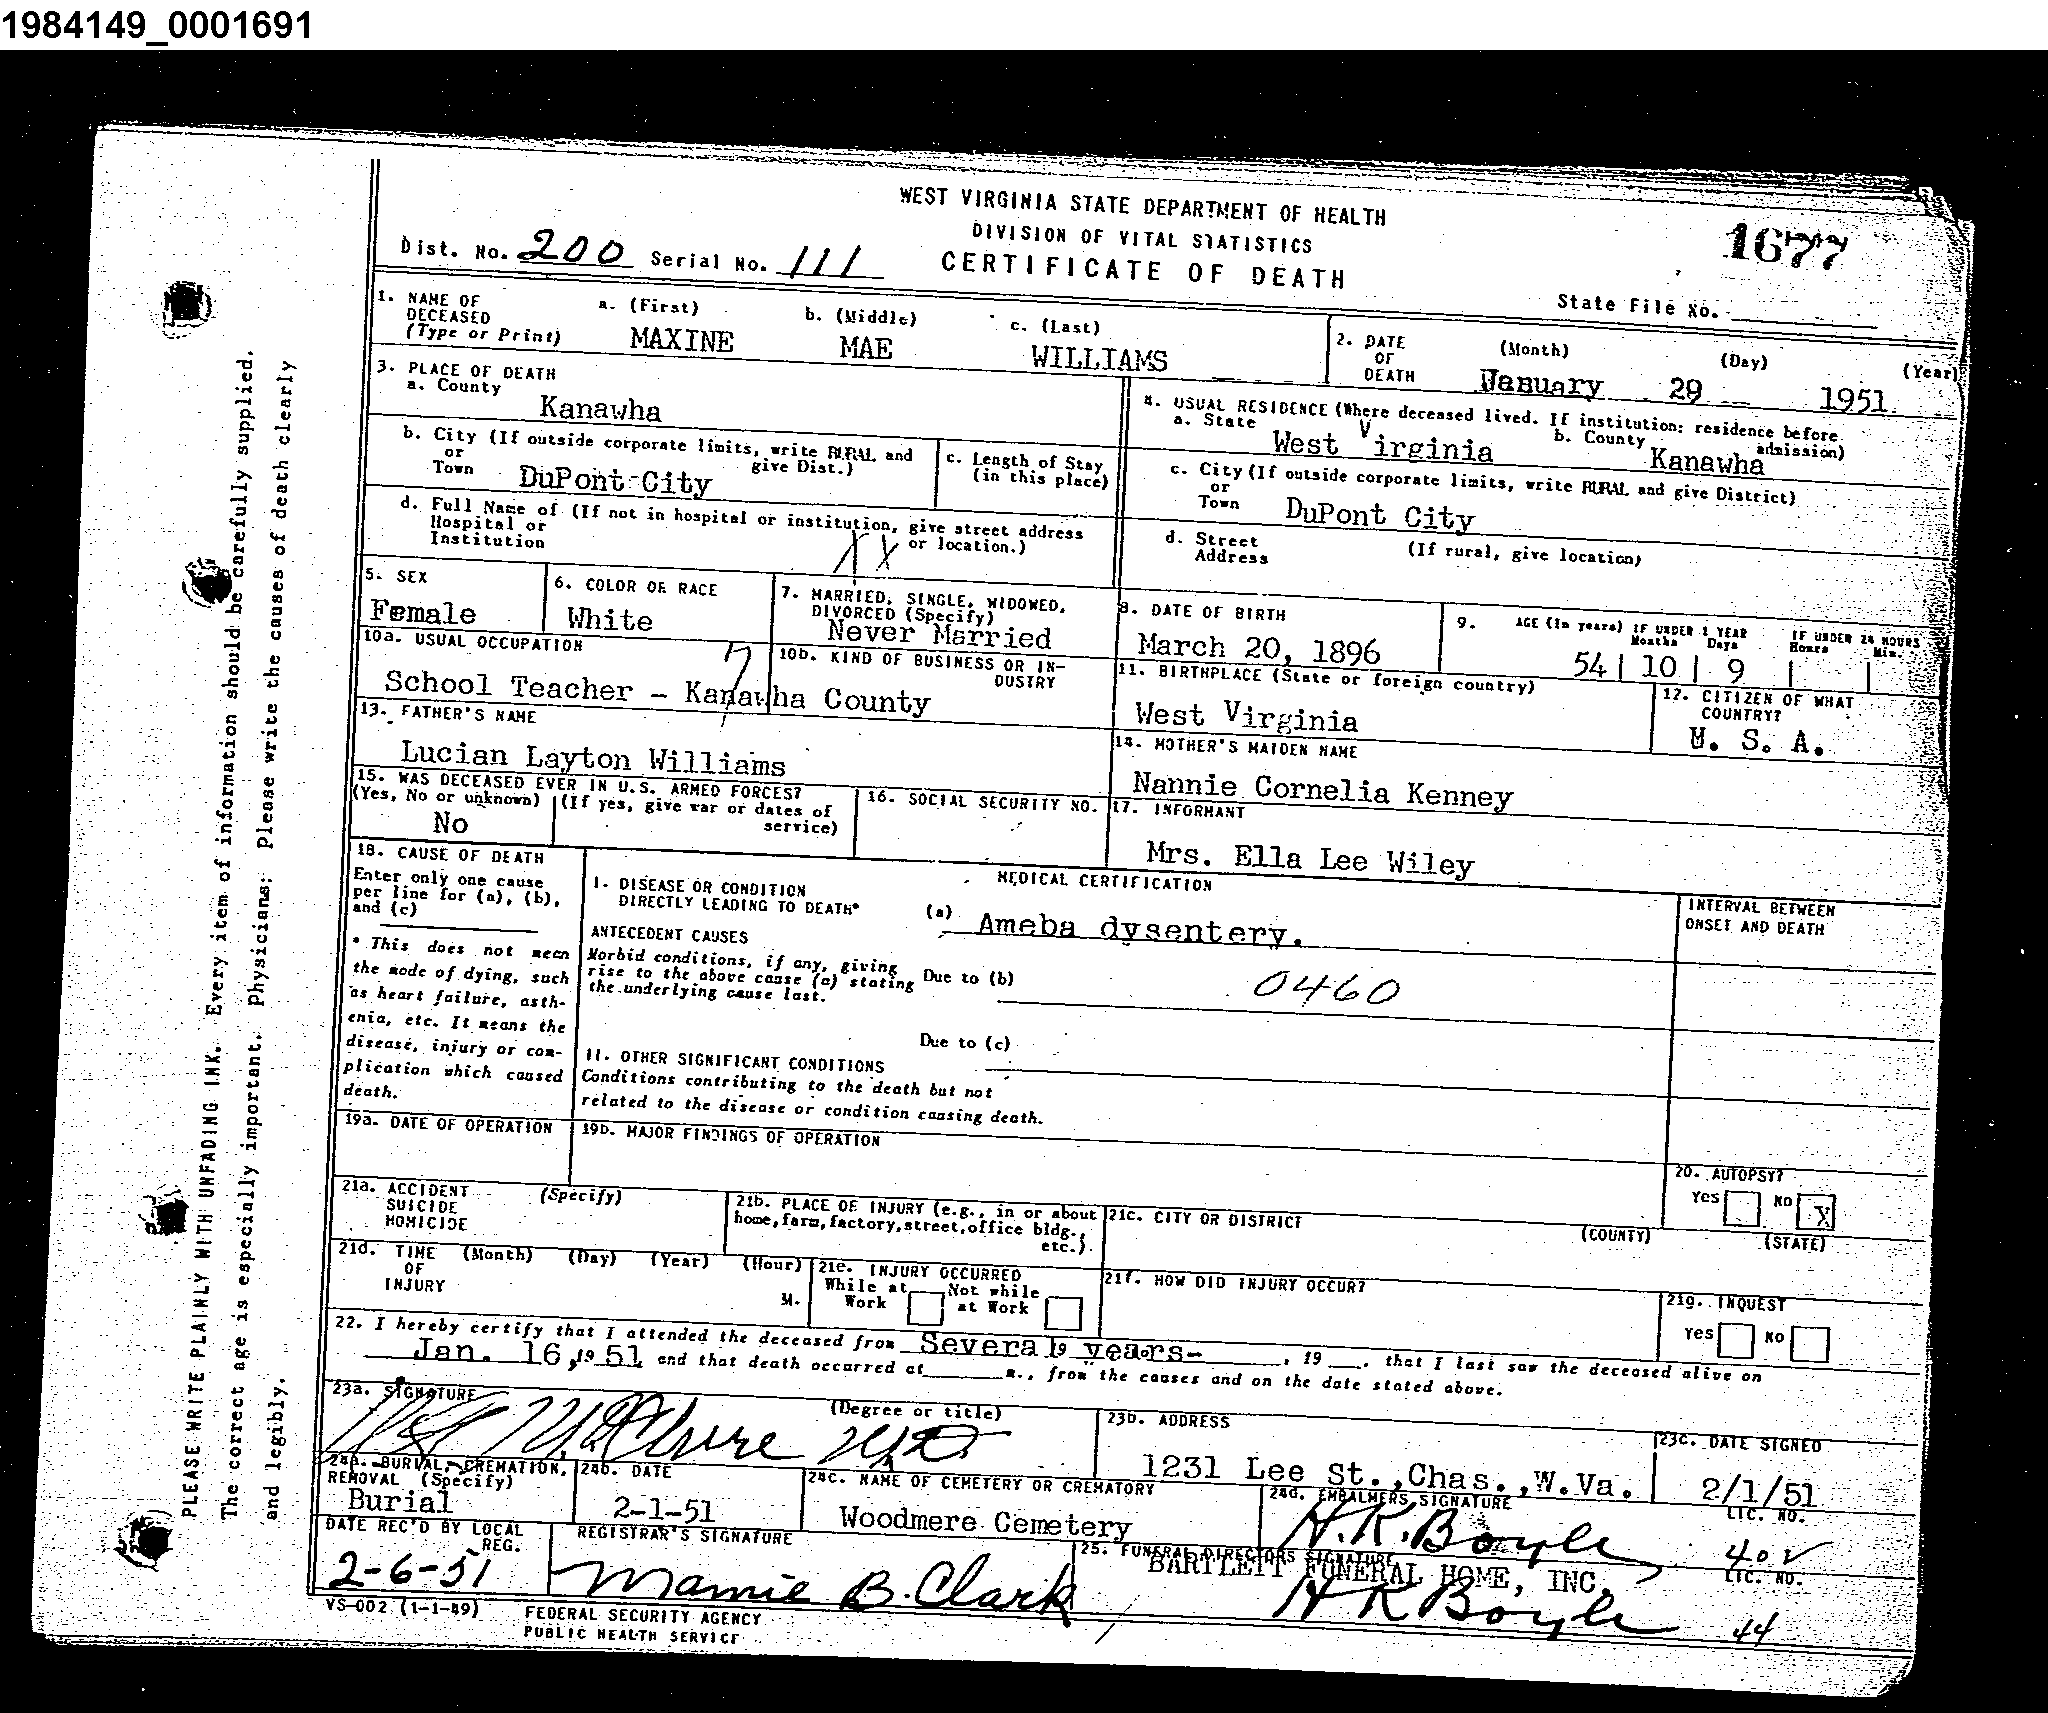 1984149_0001691
WEST VIRGINIA STATE DEPARTMENT OF HEALTH
DIVISION OF VITAL STATISTICS
CERTIFICATE OF DEATH
1677
Dist. No. 200 Serial No. 111
State File No.
1. NAME OF DECEASED (Type or Print) a. (First) MAXINE b. (Middle) MAE c. (Last) WILLIAMS
2. DATE OF DEATH (Month) January (Day) 29 (Year) 1951
3. PLACE OF DEATH
a. County Kanawha
b. City (If outside corporate limits, write RURAL and give Dist.) or Town DuPont City
c. Length of Stay (in this place)
d. Full Name of (If not in hospital or institution, give street address or location.) Hospital or Institution XX
4. USUAL RESIDENCE (Where deceased lived. If institution: residence before admission)
a. State West Virginia b. County Kanawha
c. City (If outside corporate limits, write RURAL and give District) or Town DuPont City
d. Street Address (If rural, give location)
5. SEX Female
6. COLOR OR RACE White
7. MARRIED, SINGLE, WIDOWED, DIVORCED (Specify) Never Married
8. DATE OF BIRTH March 20, 1896
9. AGE (In years) 54 IF UNDER 1 YEAR Months 10 Days 9 IF UNDER 24 HOURS Hours Min.
10a. USUAL OCCUPATION School Teacher - Kanawha County
10b. KIND OF BUSINESS OR INDUSTRY
11. BIRTHPLACE (State or foreign country) West Virginia
12. CITIZEN OF WHAT COUNTRY? U. S. A.
13. FATHER'S NAME Lucian Layton Williams
14. MOTHER'S MAIDEN NAME Nannie Cornelia Kenney
15. WAS DECEASED EVER IN U.S. ARMED FORCES? (Yes, No or unknown) No (If yes, give war or dates of service)
16. SOCIAL SECURITY NO.
17. INFORMANT Mrs. Ella Lee Wiley
18. CAUSE OF DEATH
Enter only one cause per line for (a), (b), and (c)
* This does not mean the mode of dying, such as heart failure, asthenia, etc. It means the disease, injury or complication which caused death.
MEDICAL CERTIFICATION
I. DISEASE OR CONDITION DIRECTLY LEADING TO DEATH* (a) Ameba dysentery.
ANTECEDENT CAUSES
Morbid conditions, if any, giving rise to the above cause (a) stating the underlying cause last.
Due to (b) 0460
Due to (c)
II. OTHER SIGNIFICANT CONDITIONS
Conditions contributing to the death but not related to the disease or condition causing death.
INTERVAL BETWEEN ONSET AND DEATH
19a. DATE OF OPERATION
19b. MAJOR FINDINGS OF OPERATION
20. AUTOPSY? Yes No X
21a. ACCIDENT SUICIDE HOMICIDE (Specify)
21b. PLACE OF INJURY (e.g., in or about home, farm, factory, street, office bldg., etc.)
21c. CITY OR DISTRICT (COUNTY) (STATE)
21d. TIME OF INJURY (Month) (Day) (Year) (Hour) M.
21e. INJURY OCCURRED While at Work Not while at Work
21f. HOW DID INJURY OCCUR?
21g. INQUEST Yes No
22. I hereby certify that I attended the deceased from Several years-, 19, that I last saw the deceased alive on
Jan. 16, 1951 and that death occurred at m., from the causes and on the date stated above.
23a. SIGNATURE (Degree or title)
23b. ADDRESS 1231 Lee St.,Chas.,W.Va.
23c. DATE SIGNED 2/1/51
24a. BURIAL, CREMATION, REMOVAL (Specify) Burial
24b. DATE 2-1-51
24c. NAME OF CEMETERY OR CREMATORY Woodmere Cemetery
24d. EMBALMERS SIGNATURE H.K. Boyle LIC. NO. 40
DATE REC'D BY LOCAL REG. 2-6-51
REGISTRAR'S SIGNATURE Mamie B. Clark
25. FUNERAL DIRECTORS SIGNATURE BARTLETT FUNERAL HOME, INC. HK Boyle LIC. NO. 44
VS-002 (1-1-49)
FEDERAL SECURITY AGENCY
PUBLIC HEALTH SERVICE
PLEASE WRITE PLAINLY WITH UNFADING INK. Every item of information should be carefully supplied.
The correct age is especially important. Physicians: Please write the causes of death clearly
and legibly.